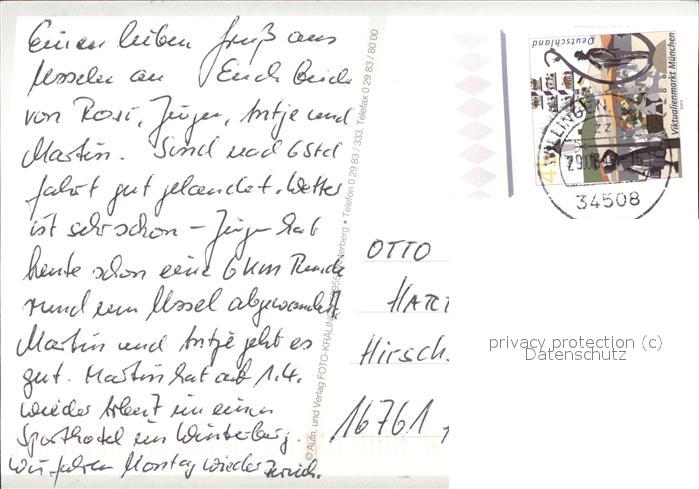 Einen lieben Gruß aus
Usseln an Euch beide
von Rosi, Jürgen, Antje und
Martin. Sind nach 6 Std
fahrt gut gelandet. Wetter
ist sehr schön – Jürgen hat
heute schon eine 6 km Runde
rund um Ussel abgewandert,
Martin und Antje geht es
gut. Martin hat ab 1.4.
wieder Arbeit in einem
Sporthotel in Winterberg.
Wir fahren Montag wieder zurück.
© Aufn. und Verlag FOTO-KRÄLING, 5955 Winterberg • Telefon 0 29 83 / 333, Telefax 0 29 83 / 80 00
Deutschland
Viktualienmarkt München
WILLINGEN
34508
OTTO
HART
Hirsch
16761
privacy protection (c)
Datenschutz